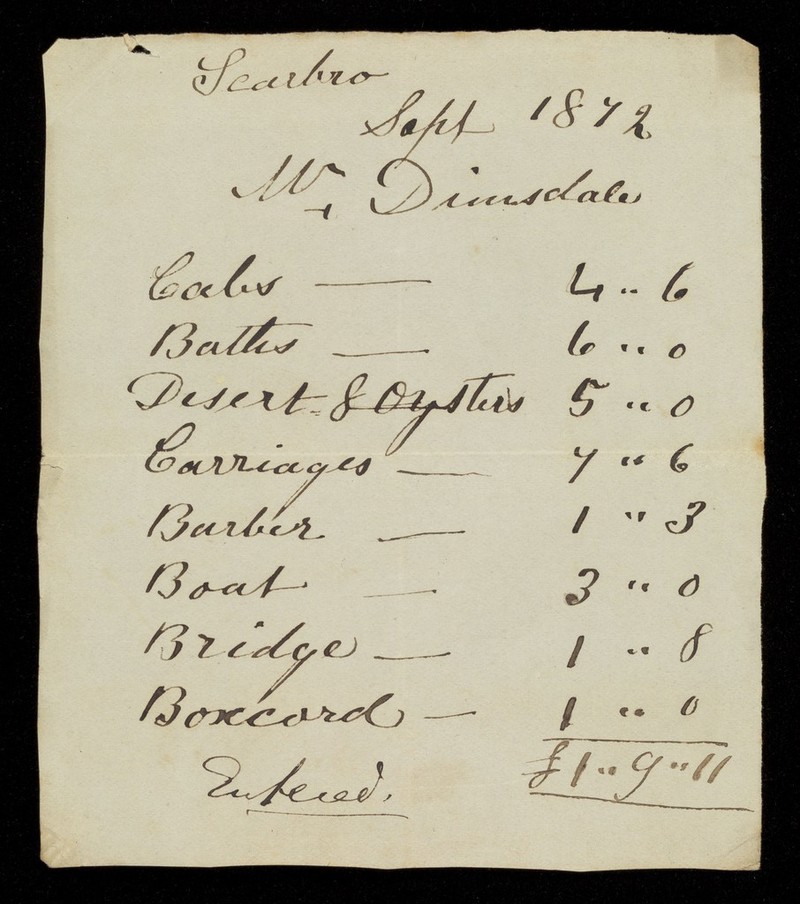 Scarbro
Sept 1872
Mr Dimsdale
Cabs — 4 " 6
Baths — 6 " 0
Desert & Oysters 5 " 0
Carriages — 7 " 6
Barber — 1 " 3
Boat — 3 " 0
Bridge — 1 " 8
Boxcord — 1 " 0
Entered. £1 " 9 " 11